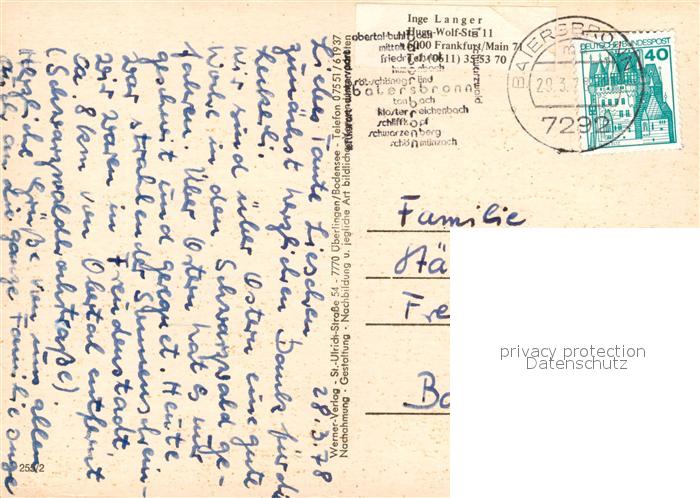 Inge Langer
Hugo-Wolf-Str. 11
6000 Frankfurt/Main 71
Tel. (0611) 35 53 70
obertal-buhlbach
mittel
friedrich
röt-schöne gründ
baiersbronn
schwarzwald
tonbach
klosterreichenbach
schliffkopf
schwarzenberg
schönmünzach
BAIERSBRONN
29.3.78
7292
DEUTSCHE BUNDESPOST
40
28.3.78
Liebe Tante Lieschen
zunächst herzlichen Dank für die
wir sind über Ostern eine gute
Woche in den Schwarzwald ge-
fahren. Über Ostern hat es nur
geschneit und geregnet. Heute
war strahlender Sonnenschein
wir waren in Freudenstadt
ca 8 km von Obertal entfernt
(Schwarzwaldhochstraße).
Herzliche Grüße von uns allen
an die ganze Familie
Werner-Verlag - St.-Ulrich-Straße 54 - 7770 Überlingen/Bodensee - Telefon 07551/61937
Nachahmung - Gestaltung - Nachbildung u. jegliche Art bildlicher
255/2
Familie
Hä
Fre
Ba
privacy protection
Datenschutz